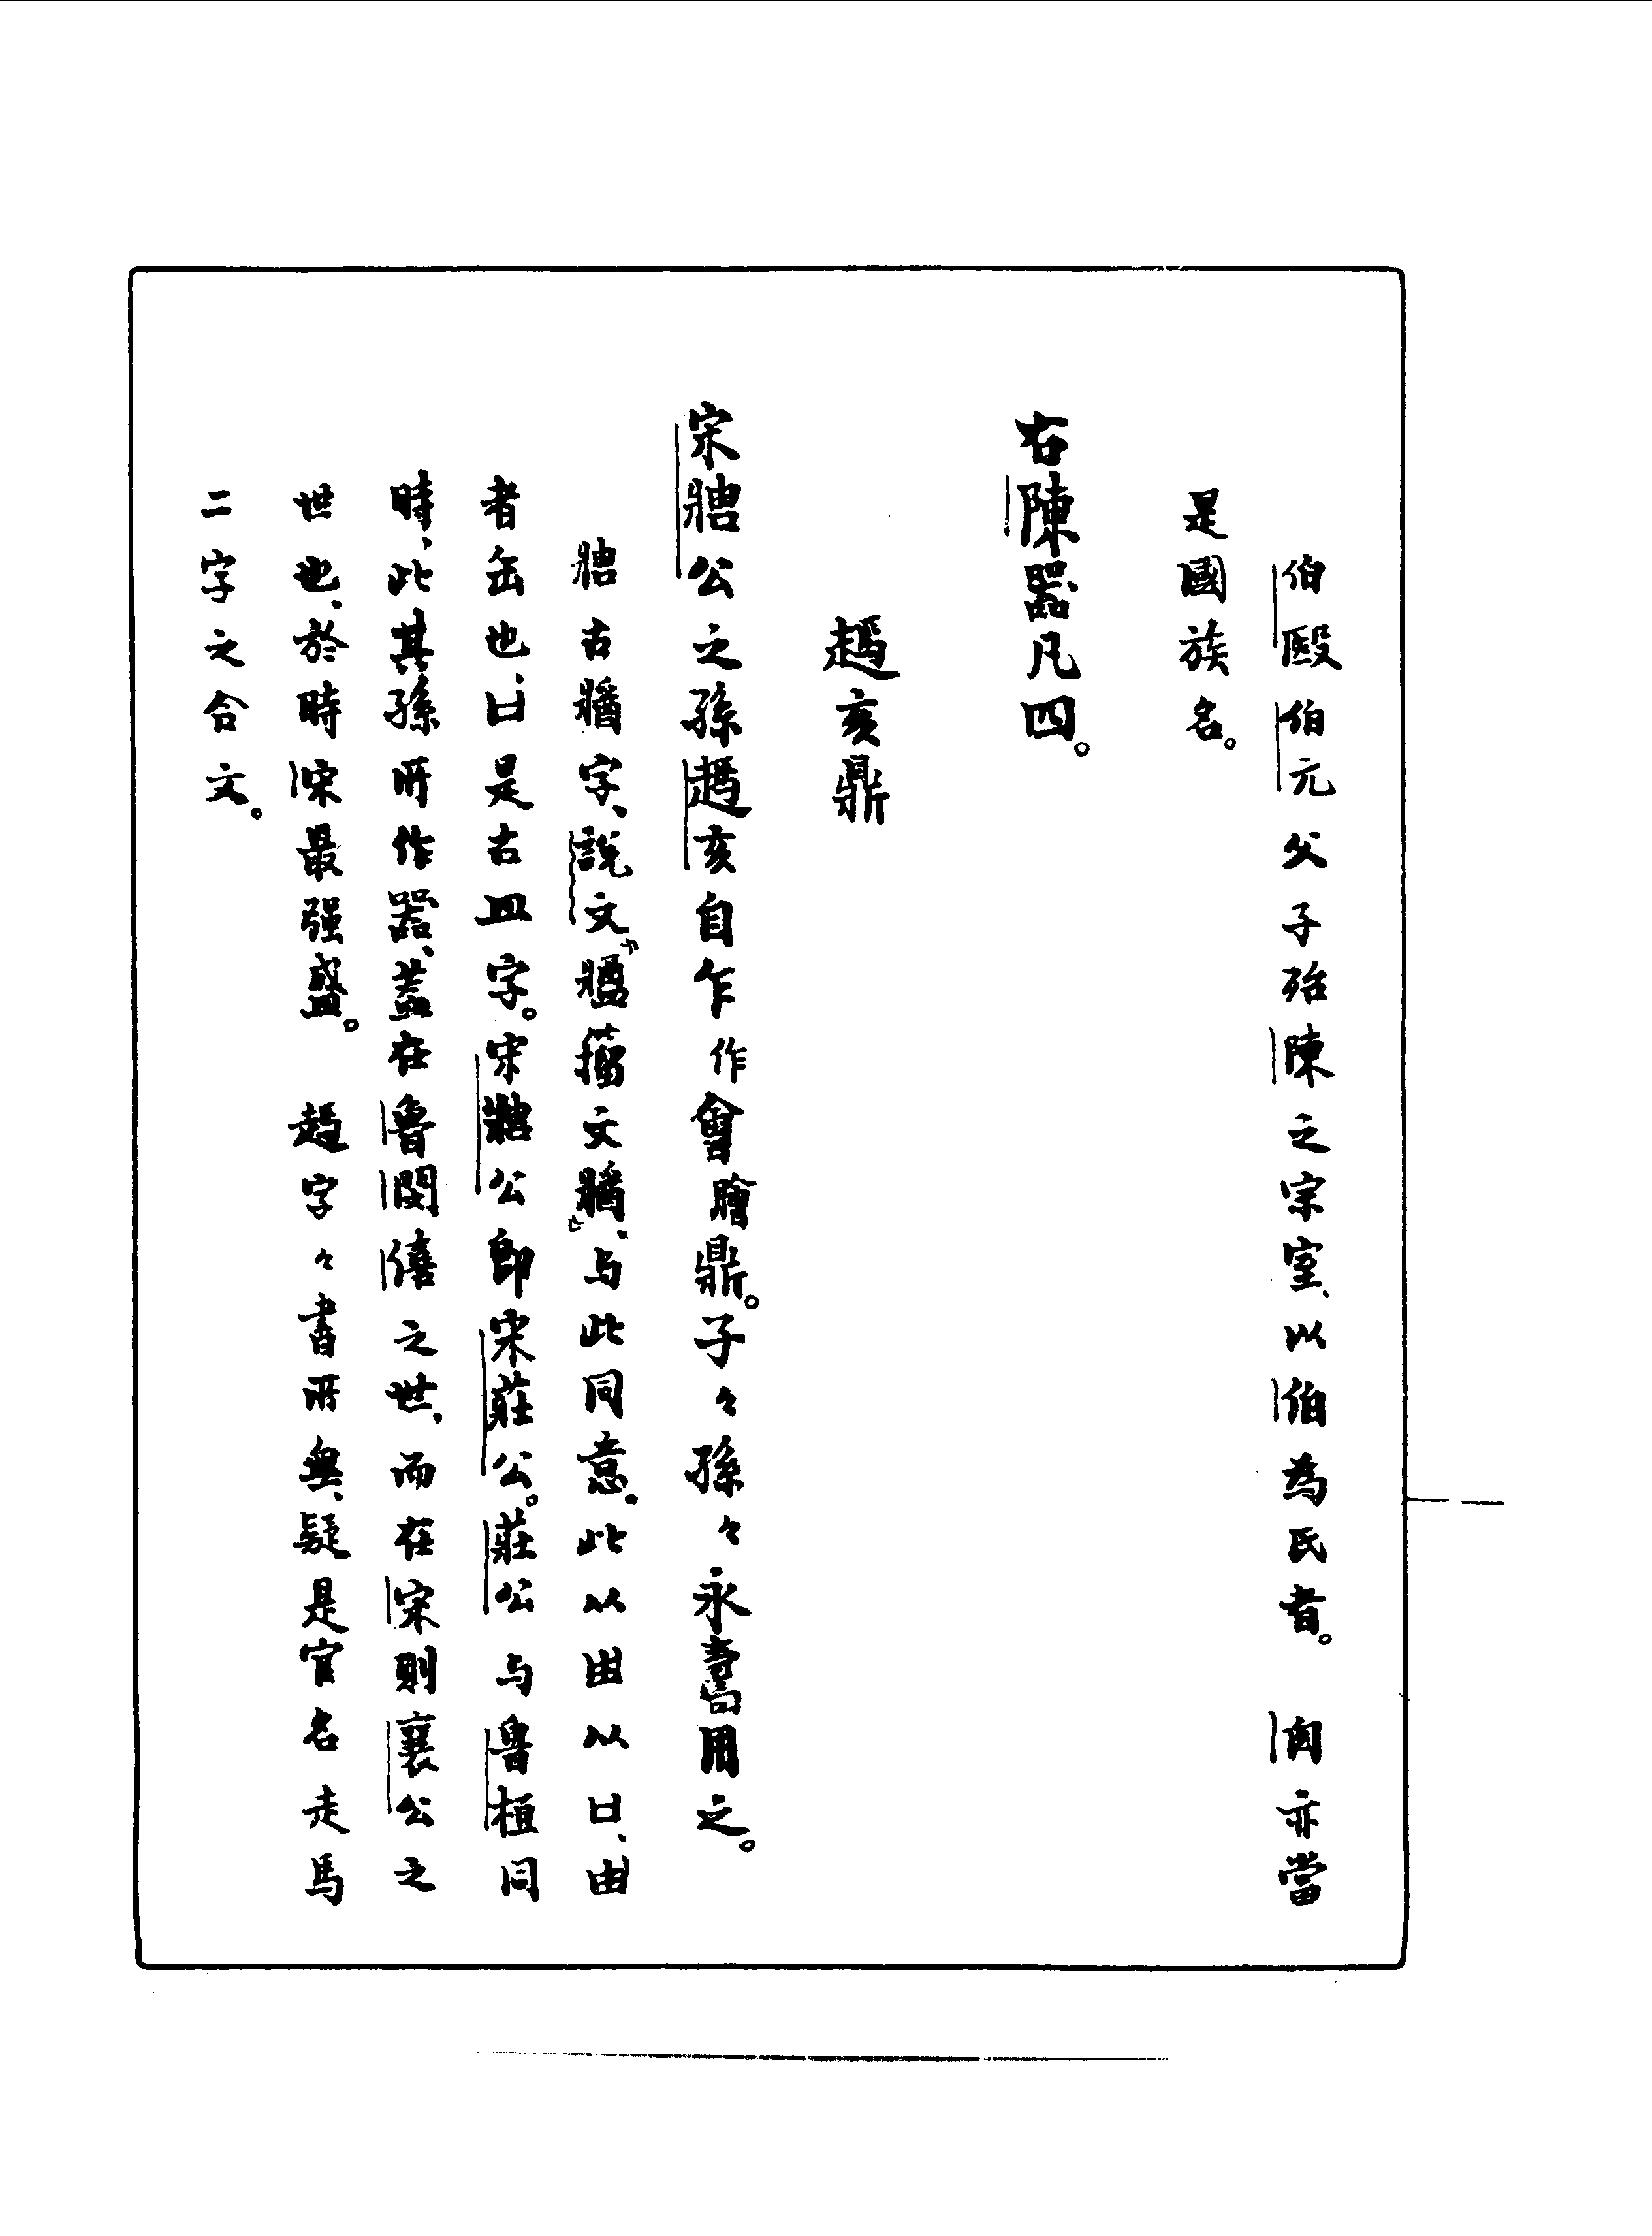 伯毆伯元父子殆陳之宗室、以伯為氏者。　𢦏亦當
是國族名。
右陳器凡四。
趞亥鼎
宋𤖕公之孫趞亥自乍作會膾鼎。子〻孫〻永壽用之。
𤖕古牆字、說文『牆籀文牆』、与此同意。此以由以凵、由
者缶也、凵是古皿字。宋𤖕公即宋莊公。莊公与魯桓同
時、此其孫所作器、蓋在魯閔僖之世、而在宋則襄公之
世也、於時宋最强盛。　字〻書所無、疑是官名走馬
二字之合文。